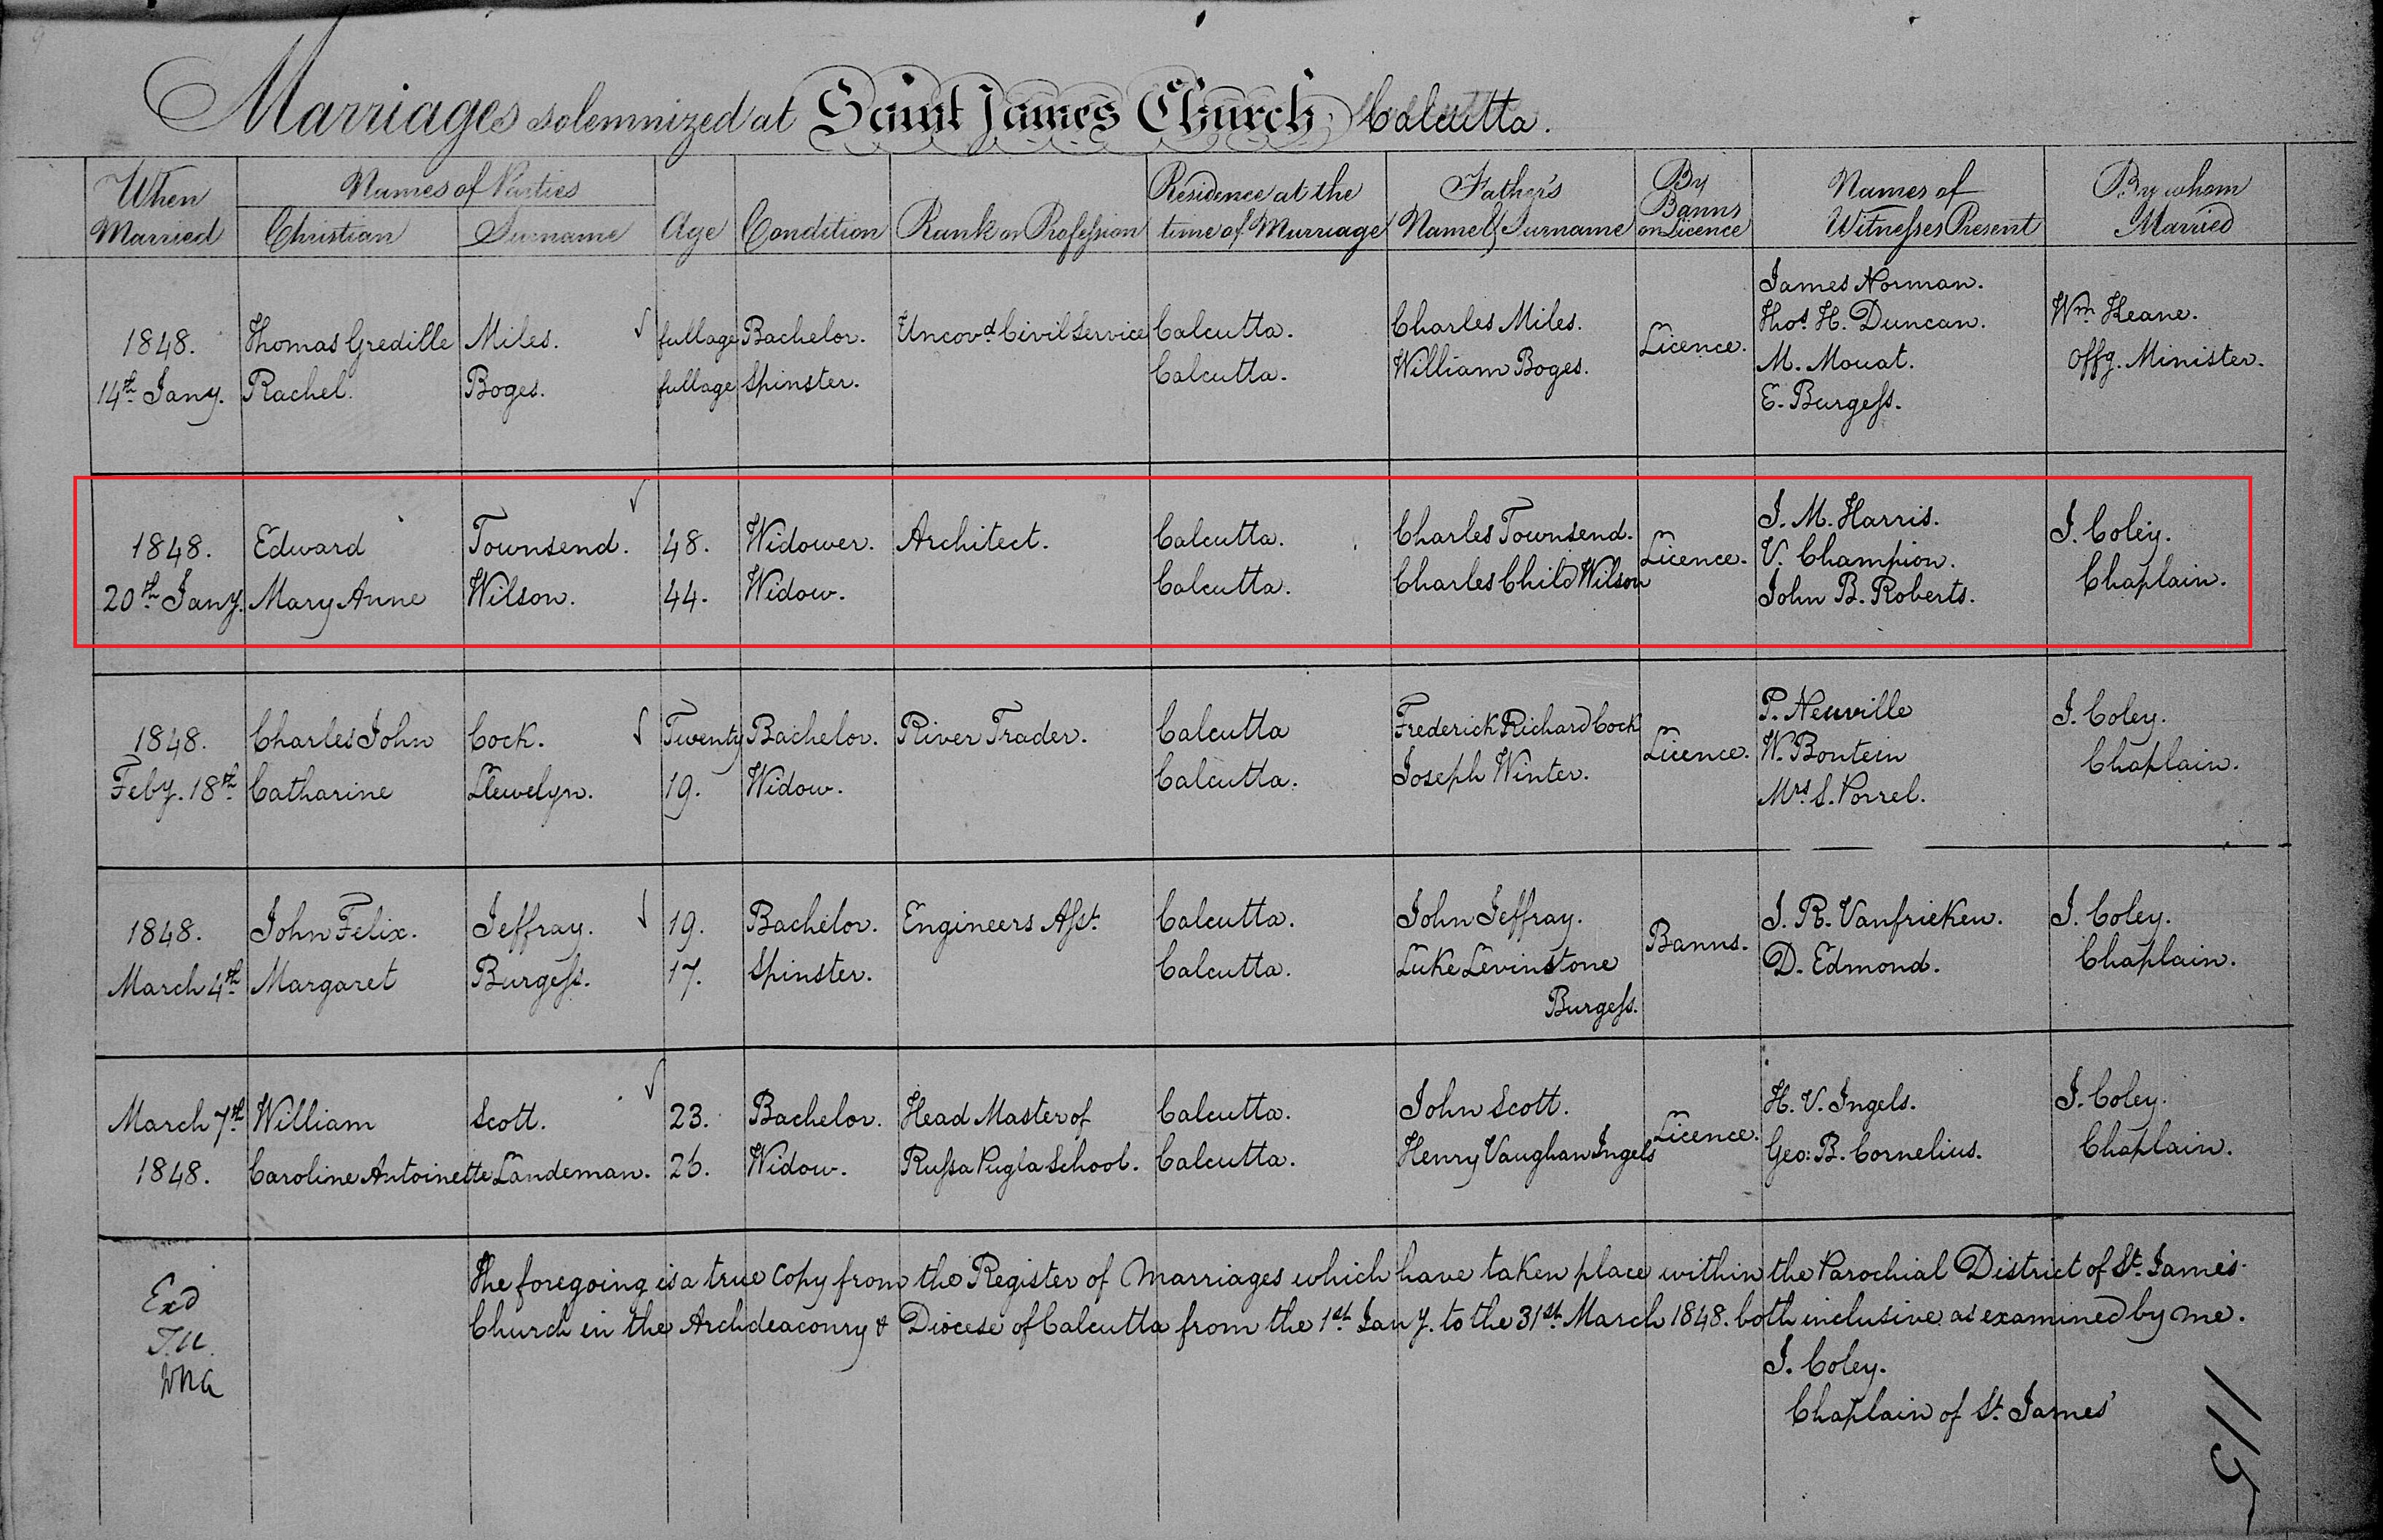 Marriages solemnized at Saint James Church, Calcutta.
When Married
Names of Parties
Christian
Surname
Age
Condition
Rank or Profession
Residence at the time of Marriage
Father's Name & Surname
By Banns or Licence
Names of Witnesses Present
By whom Married
1848. 14th Jany.
Thomas Gredille Miles. fullage Bachelor. Uncovd. Civil Service Calcutta. Charles Miles.
Rachel. Boges. fullage Spinster. Calcutta. William Boges.
Licence.
James Norman.
Thos. H. Duncan.
M. Mouat.
E. Burgess.
Wm. Keane.
Offg. Minister.
1848. 20th Jany.
Edward Townsend. 48. Widower. Architect. Calcutta. Charles Townsend.
Mary Anne Wilson. 44. Widow. Calcutta. Charles Child Wilson
Licence.
J. M. Harris.
V. Champion.
John B. Roberts.
J. Coley.
Chaplain.
1848. Feby. 18th
Charles John Cock. Twenty Bachelor. River Trader. Calcutta Frederick Richard Cock
Catharine Llewelyn. 19. Widow. Calcutta. Joseph Winter.
Licence.
P. Neuville
W. Bontein
Mrs. S. Porrel.
J. Coley.
Chaplain.
1848. March 4th
John Felix. Jeffray. 19. Bachelor. Engineers Asst. Calcutta. John Jeffray.
Margaret Burgess. 17. Spinster. Calcutta. Luke Levinstone
Burgess.
Banns.
J. R. Vanfrieken.
D. Edmond.
J. Coley.
Chaplain.
March 7th 1848.
William Scott. 23. Bachelor. Head Master of Calcutta. John Scott.
Caroline Antoinette Landeman. 26. Widow. Russa Pugla School. Calcutta. Henry Vaughan Ingels
Licence.
H. V. Ingels.
Geo: B. Cornelius.
J. Coley.
Chaplain.
Exd
The foregoing is a true Copy from the Register of Marriages which have taken place within the Parochial District of St. James
Church in the Archdeaconry & Diocese of Calcutta from the 1st Jany. to the 31st March 1848. both inclusive as examined by me.
J. Coley.
Chaplain of St. James'
115